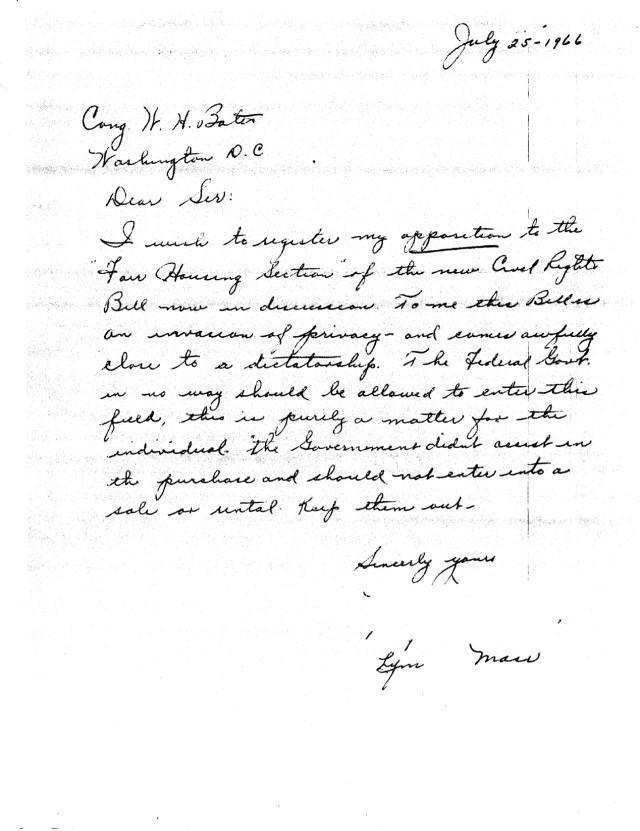 July 25-1966
Cong. W. H. Bates
Washington D.C.
Dear Sir:
I wish to register my opposition to the
"Fair Housing Section" of the new Civil Rights
Bill now in discussion. To me this Bill is
an invasion of privacy - and comes awfully
close to a dictatorship. The Federal Govt.
in no way should be allowed to enter this
field, this is purely a matter for the
individual. The Government didn't assist in
th purchase and should not enter into a
sale or rental. Keep them out -
Sincerly yours
Lynn Mass